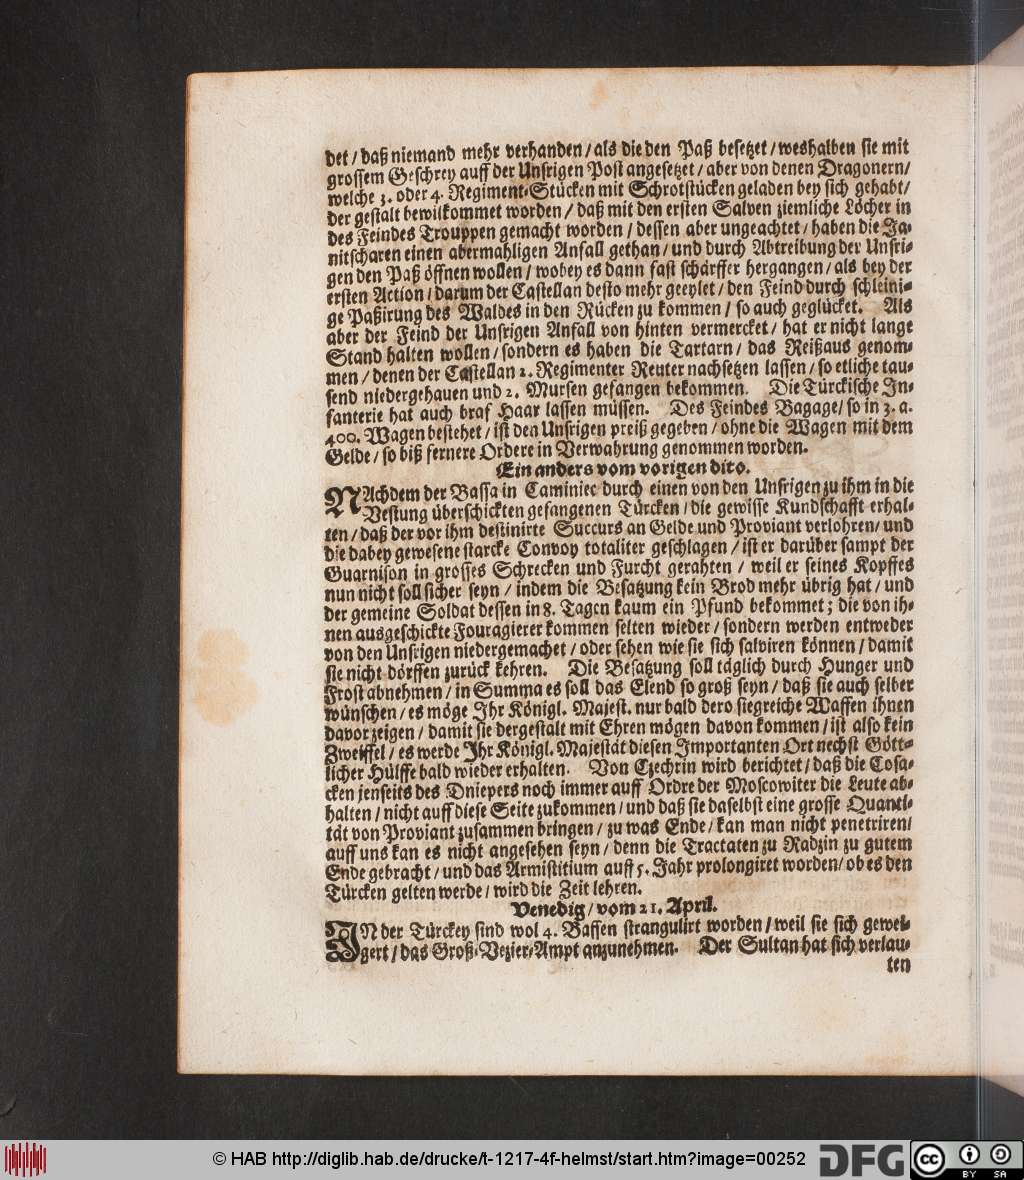 det / daß niemand mehr verhanden / als die den Paß besetzet / weshalben sie mit
grossem Geschrey auff der Unsrigen Post angesetzet / aber von denen Dragonern /
welche 3. oder 4. Regiment-Stücken mit Schrotstücken geladen bey sich gehabt /
der gestalt bewillkommet worden / daß mit den ersten Salven ziemliche Löcher in
des Feindes Trouppen gemacht worden / dessen aber ungeachtet / haben die Ja-
nitscharen einen abermahligen Anfall gethan / und durch Abtreibung der Unsri-
gen den Paß öffnen wollen / wobey es dann fast schärffer hergangen / als bey der
ersten Action / darum der Castellan desto mehr geeylet / den Feind durch schleini-
ge Paßirung des Waldes in den Rücken zu kommen / so auch geglücket. Als
aber der Feind der Unsrigen Anfall von hinten vermercket / hat er nicht lange
Stand halten wollen / sondern es haben die Tartarn / das Reißaus genom-
men / denen der Castellan 2. Regimenter Reuter nachsetzen lassen / so etliche tau-
send niedergehauen und 2. Mursen gefangen bekommen. Die Türckische In-
fanterie hat auch braf Haar lassen müssen. Des Feindes Bagage / so in 3. a.
400. Wagen bestehet / ist den Unsrigen preiß gegeben / ohne die Wagen mit dem
Gelde / so biß fernere Ordere in Verwahrung genommen worden.
Ein anders vom vorigen dito.
NAchdem der Bassa in Caminiec durch einen von den Unsrigen zu ihm in die
Vestung überschickten gefangenen Türcken / die gewisse Kundschafft erhal-
ten / daß der vor ihm destinirte Succurs an Gelde und Proviant verlohren / und
die dabey gewesene starcke Convoy totaliter geschlagen / ist er darüber sampt der
Guarnison in grosses Schrecken und Furcht gerahten / weil er seines Kopffes
nun nicht soll sicher seyn / indem die Besatzung kein Brod mehr übrig hat / und
der gemeine Soldat dessen in 8. Tagen kaum ein Pfund bekommet; die von ih-
nen ausgeschickte Fouragierer kommen selten wieder / sondern werden entweder
von den Unsrigen niedergemachet / oder sehen wie sie sich salviren können / damit
sie nicht dörffen zurück kehren. Die Besatzung soll täglich durch Hunger und
Frost abnehmen / in Summa es soll das Elend so groß seyn / daß sie auch selber
wünschen / es möge Ihr Königl. Majest. nur bald dero siegreiche Waffen ihnen
davor zeigen / damit sie dergestalt mit Ehren mögen davon kommen / ist also kein
Zweiffel / es werde Ihr Königl. Majestät diesen Importanten Ort nechst Gött-
licher Hülffe bald wieder erhalten. Von Czechrin wird berichtet / daß die Cosa-
cken jenseits des Dniepers noch immer auff Ordre der Moscowiter die Leute ab-
halten / nicht auff diese Seite zukommen / und daß sie daselbst eine grosse Quanti-
tät von Proviant zusammen bringen / zu was Ende / kan man nicht penetriren /
auff uns kan es nicht angesehen seyn / denn die Tractaten zu Radzin zu gutem
Ende gebracht / und das Armistitium auff 5. Jahr prolongiret worden / ob es den
Türcken gelten werde / wird die Zeit lehren.
Venedig / vom 21. April.
IN der Türckey sind wol 4. Bassen stranguliret worden / weil sie sich gewei-
gert / das Groß-Vezier-Ampt anzunehmen. Der Sultan hat sich verlau-
ten
© HAB http://diglib.hab.de/drucke/t-1217-4f-helmst/start.htm?image=00252
DFG
cc BY SA